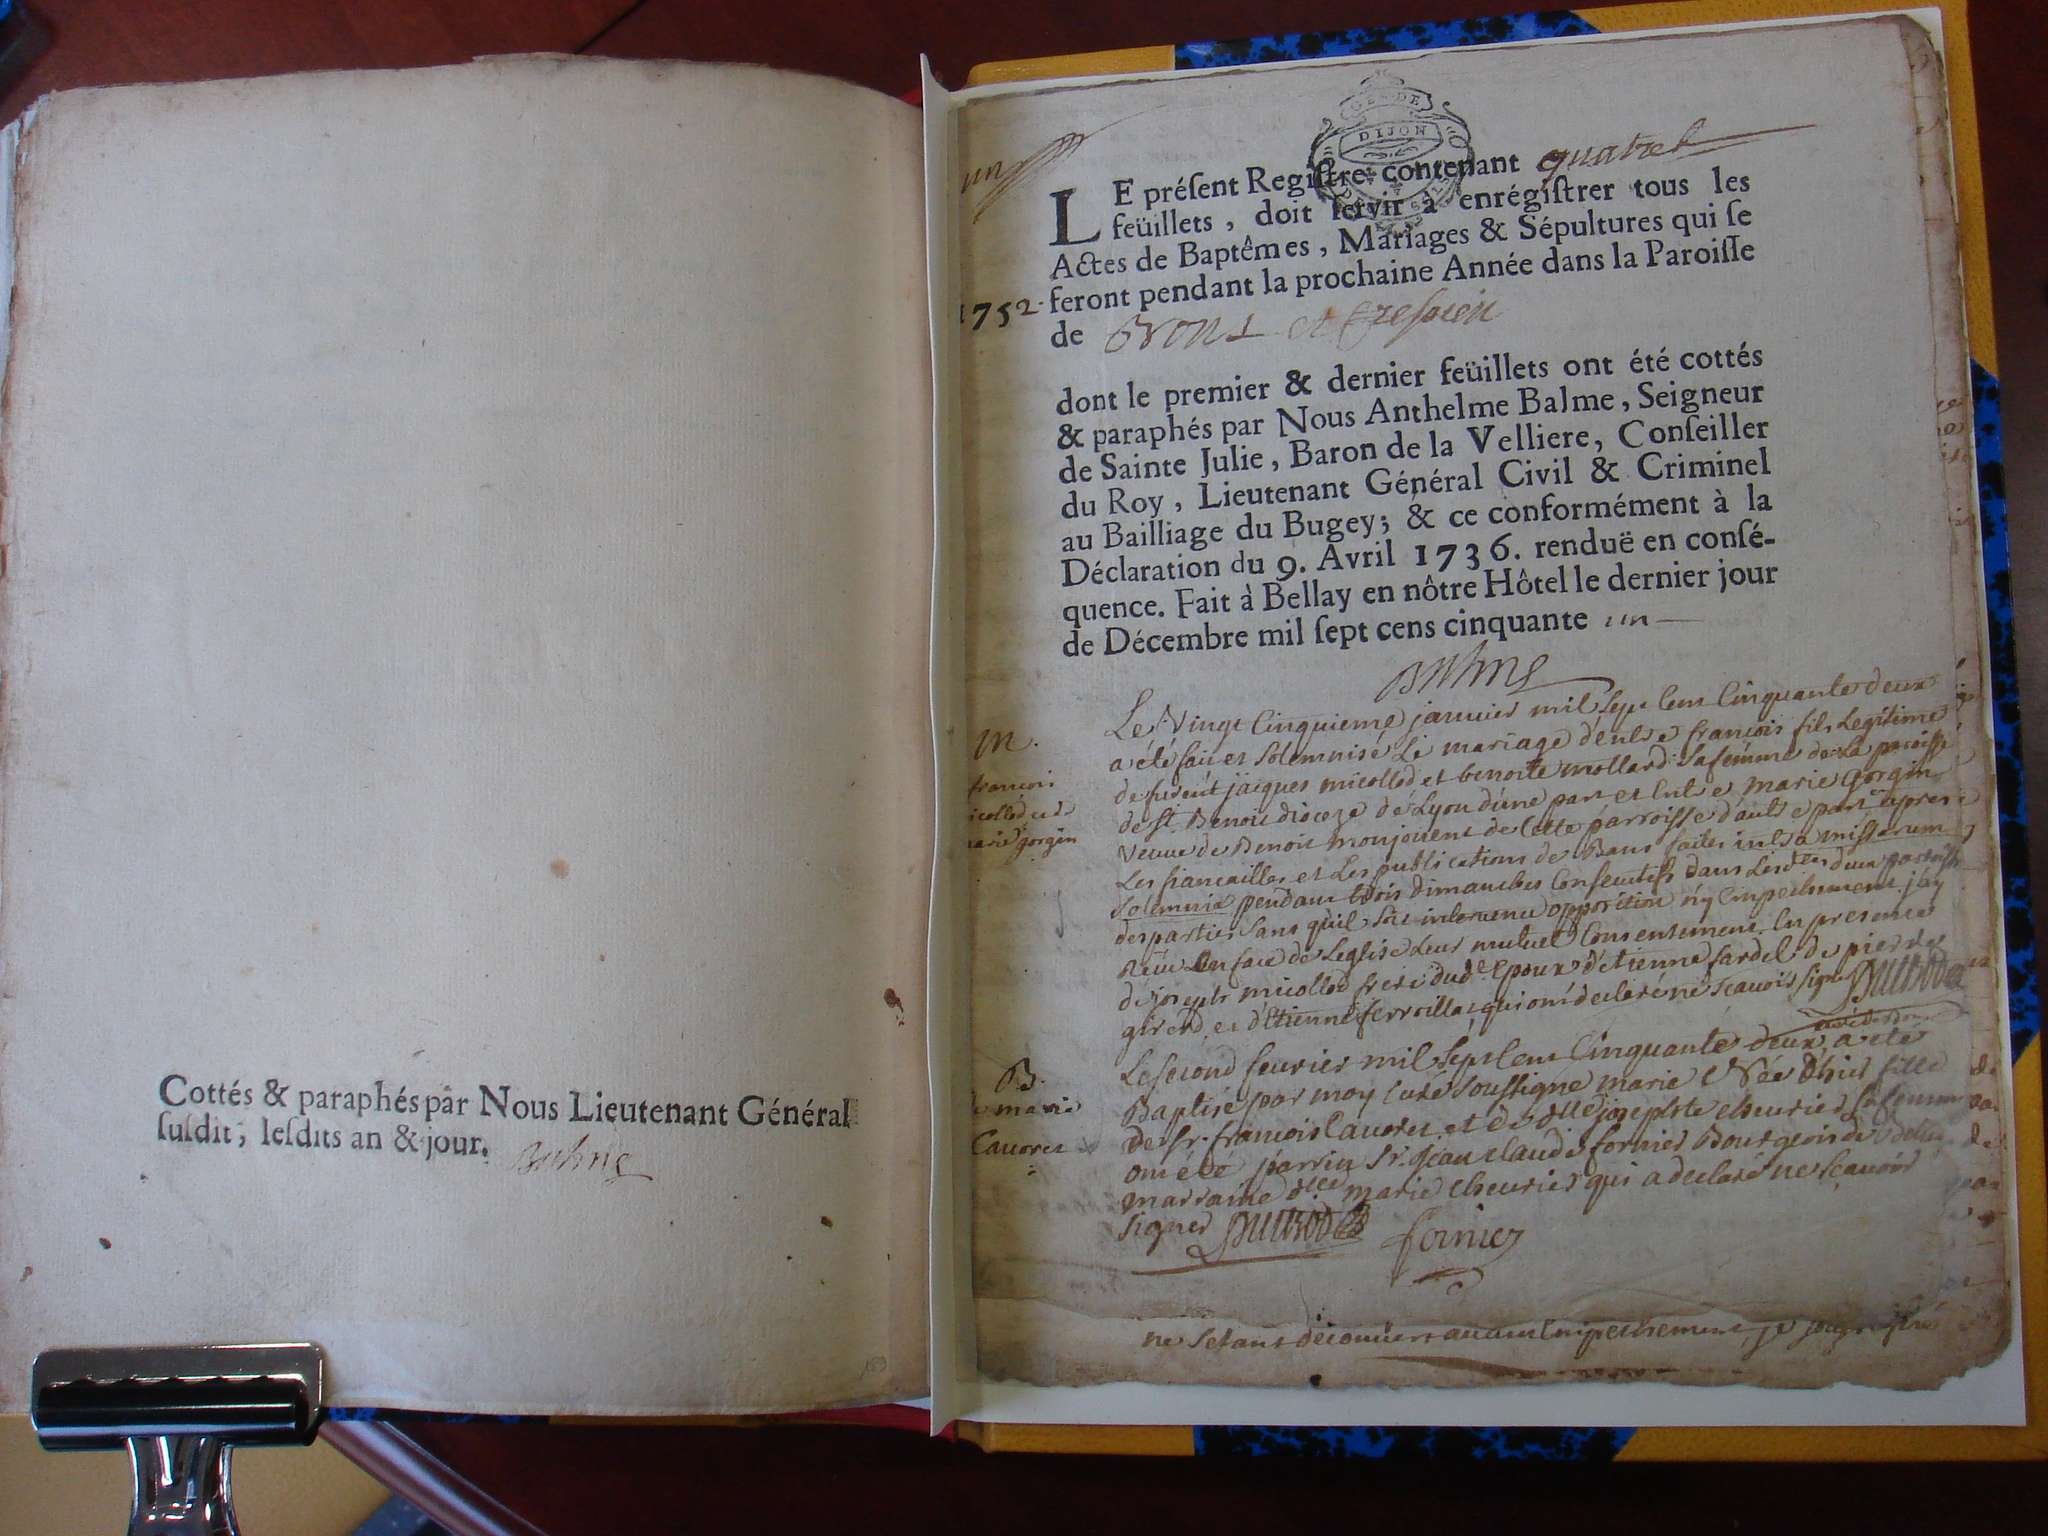 Cottés & paraphés par Nous Lieutenant Général
ſuſdit, leſdits an & jour.
GEN DE
DIJON
un
LE préſent Regiſtre contenant quatre
feüillets, doit ſervir à enrégiſtrer tous les
Actes de Baptêmes, Mariages & Sépultures qui ſe
1752. feront pendant la prochaine Année dans la Paroiſſe
de Brons et Creſpieu
dont le premier & dernier feüillets ont été cottés
& paraphés par Nous Anthelme Balme, Seigneur
de Sainte Julie, Baron de la Velliere, Conſeiller
du Roy, Lieutenant Général Civil & Criminel
au Bailliage du Bugey; & ce conformément à la
Déclaration du 9. Avril 1736. renduë en conſé-
quence. Fait à Bellay en nôtre Hôtel le dernier jour
de Décembre mil ſept cens cinquante un
Balme
M.
francois
micollod et de
marie gorgin
Le Vingt Cinquieme janvier mil Sept Cent Cinquante deux
a été fait et Solemnisé Le mariage d'entre françois fils Legitime
de furent jacques micollod et benoite mollard Sa femme de La paroisse
de St. Benoit dioceze de Lyon d'une part et Entre marie Gorgin
Veuve de Benoit monjouent de Cette parroisse d'autre part apres
Les fiancailles et Les publications de Bans faites intra missarum
Solemnia pendant trois dimanches Consecutifs dans Lesd. deux paroisses
des parties Sans quil Soit intervenu opposition ny Empeschement j'ay
Reçu En face de Leglise Leur mutuel Consentement En presence
de joseph micollod frere dud. Epoux d'etienne fardel de pierre
girerd et d'Etienne ferroillat qui ont declaré ne Scavoir signer
B.
de marie
Cauoret
Le second feurier mil Sept Cent Cinquante deux a eté
Baptisé par moy Curé Soussigné marie Née d'hier fille
de Sr. francois Cauoret et de dlle josephte cheurier Sa femme
ont été parrin Sr. Jean claude fornier Bourgeois de
marraine dlle marie cheurier qui a declaré ne Scauoir
signer fornier
ne Setant decouuert aucun Empeschement je